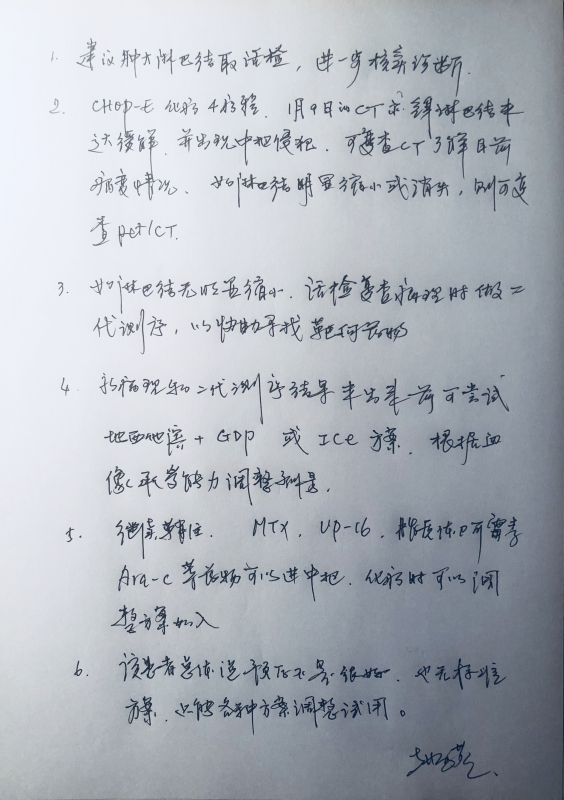 1. 建议肿大淋巴结取活检，进一步核实诊断.
2. CHOP-E 化疗4疗程. 1月9日的CT示 淋巴结未
达缓解, 并出现中枢侵犯. 可复查CT了解目前
病变情况. 如淋巴结明显缩小或消失，则可复
查pet/CT.
3. 如淋巴结无明显缩小. 活检复查病理时做二
代测序，以协助寻找靶向药物
4. 新病理和二代测序结果未出来前可尝试
地西他滨 + GDP 或 ICE 方案. 根据血
像, 承受能力调整剂量.
5. 继续鞘注. MTX, VP-16,
Ara-c 等药物可以进中枢. 化疗时可以调
整方案加入
6. 该患者总体说预后不是很好, 也无标准
方案. 只能各种方案调整试用。